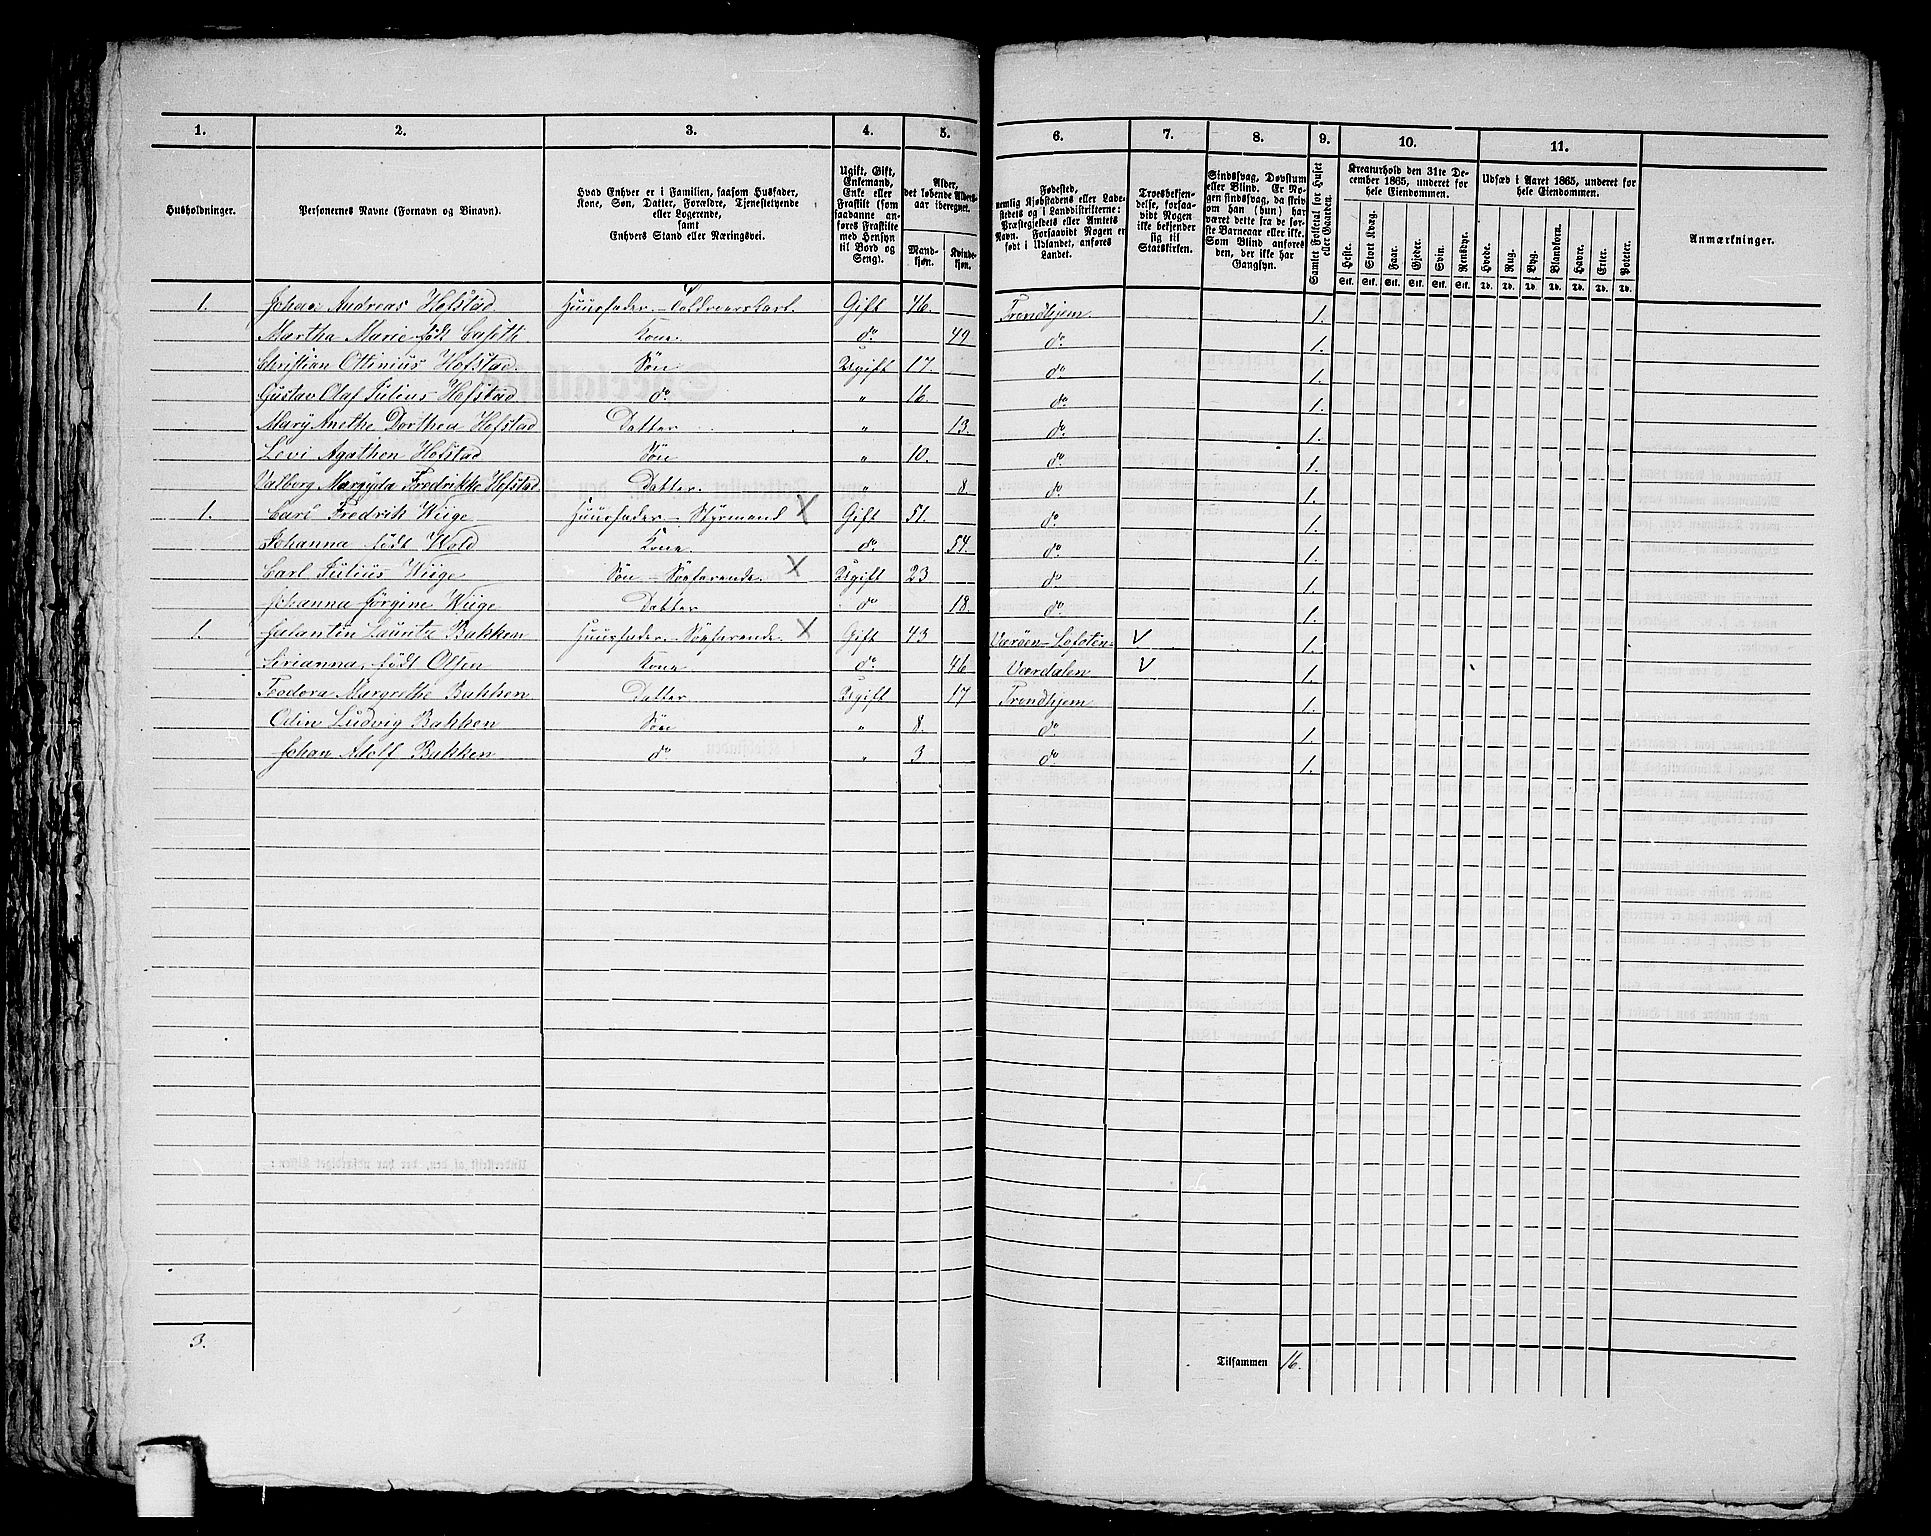 1. 2. 3. 4. 5. 6. 7. 8. 9. 10. 11.
Husholdninger.
Personernes Navne (Fornavn og Binavn).
Hvad Enhver er i Familien, saasom Husfader,
Kone, Søn, Datter, Forældre, Tjenestetyende
eller Logerende,
samt
Enhvers Stand eller Næringsvei.
Ugift, Gift,
Enkemand,
Enke eller
Fraskilt (som
saadanne an-
føres Fraskilte
med Hensyn
til Bord og
Seng).
Alder,
det løbende Alders-
aar iberegnet.
Mand-
kjøn.
Kvinde-
kjøn.
Fødested,
nemlig Kjøbstadens eller Lade-
stedets og i Landdistrikterne:
Præstegjeldets eller Amtets
Navn. Forsaavidt Nogen er
født i Udlandet, anføres
Landet.
Troesbekjen-
delse, forsaa-
vidt Nogen
ikke bekjender
sig til
Statskirken.
Sindssvag, Døvstum
eller Blind. Er No-
gen sindssvag, da skriv
om han (hun) har
været dette fra de før-
ste Barneaar eller ikke.
Som Blind anføres
den, der ikke har
Gangsyn.
Samlet Folketal for Huset
eller Gaarden.
Kreaturhold den 31te De-
cember 1865, underet for
hele Eiendommen.
Heste. Stort Kvæg. Faar. Gjeder. Svin. Rensdyr.
Stk. Stk. Stk. Stk. Stk. Stk.
Udsæd i Aaret 1865, underet for
hele Eiendommen.
Hvede. Rug. Byg. Blandkorn. Havre. Erter. Poteter.
Td. Td. Td. Td. Td. Td. Td.
Anmærkninger.
1. Johan Andreas Hofstad Huusfader - Gift 46. Trondhjem 1.
Martha Marie født Kone do. 49 do. 1.
Christian Ottinius Hofstad Søn Ugift 17. do. 1.
Gustav Olaf Julius Hofstad do. " 16. do. 1.
Mary Anethe Dorthea Hofstad Datter " 13. do. 1.
Levi Agathon Hofstad Søn " 10. do. 1.
Valborg Margyda Fredrikke Hofstad Datter. " 8. do. 1.
1. Carl Fredrik Wiige Huusfader - Styrmand X Gift 51. do. 1.
Johanna født Wold Kone do. 54. do. 1.
Carl Julius Wiige Søn - Søefarende. X Ugift 23 do. 1.
Johanna Jørgine Wiige Datter do. 18. do. 1.
1. Lauritz Bakken Huusfader - Søefarende. X Gift 43 Værøen - Lofoten V 1.
Sirianna, født Olsen Kone do. 46 Værdalen V 1.
Teodora Margrethe Bakken Datter Ugift 17 Trondhjem 1.
Odin Ludvig Bakken Søn " 8. do. 1.
Johan Adolf Bakken do. " 3 do. 1.
3.
Tilsammen 16.